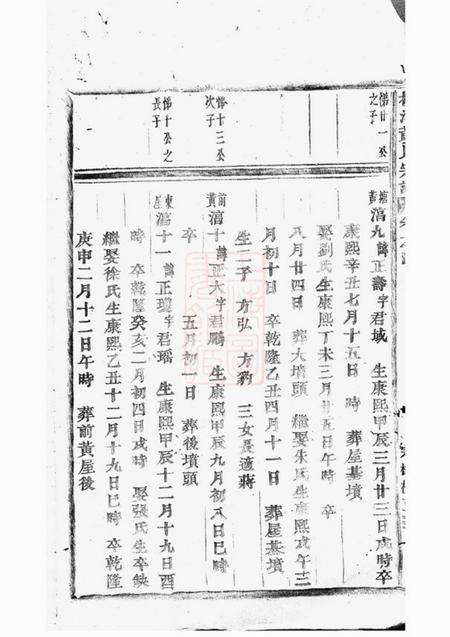 悌廿一公
之子
塘黃 澝九 諱正壽字君城 生康熙甲辰三月廿三日戌時卒
康熙辛丑七月十五日時 葬屋基墳
娶劉氏生康熙丁未三月廿五日午時 卒
八月廿四日 葬大墳頭 繼娶朱氏生康熙戊午三
月初十日 卒乾隆乙丑四月十一日 葬屋基墳
生二子 方弘 方豹 三女長適蔣
悌十三公
次子
前黃 澝十 諱正大字君鵬 生康熙甲辰九月初八日巳時
卒 五月初一日 葬後墳頭
悌十公之
長子
東屋 澝十一 諱正瓊字君瑤 生康熙甲辰十二月十九日酉
時 卒乾隆癸亥二月初四日戌時 娶張氏生卒缺
繼娶徐氏生康熙乙丑十二月十九日巳時 卒乾隆
庚申二月十二日午時 葬前黃屋後